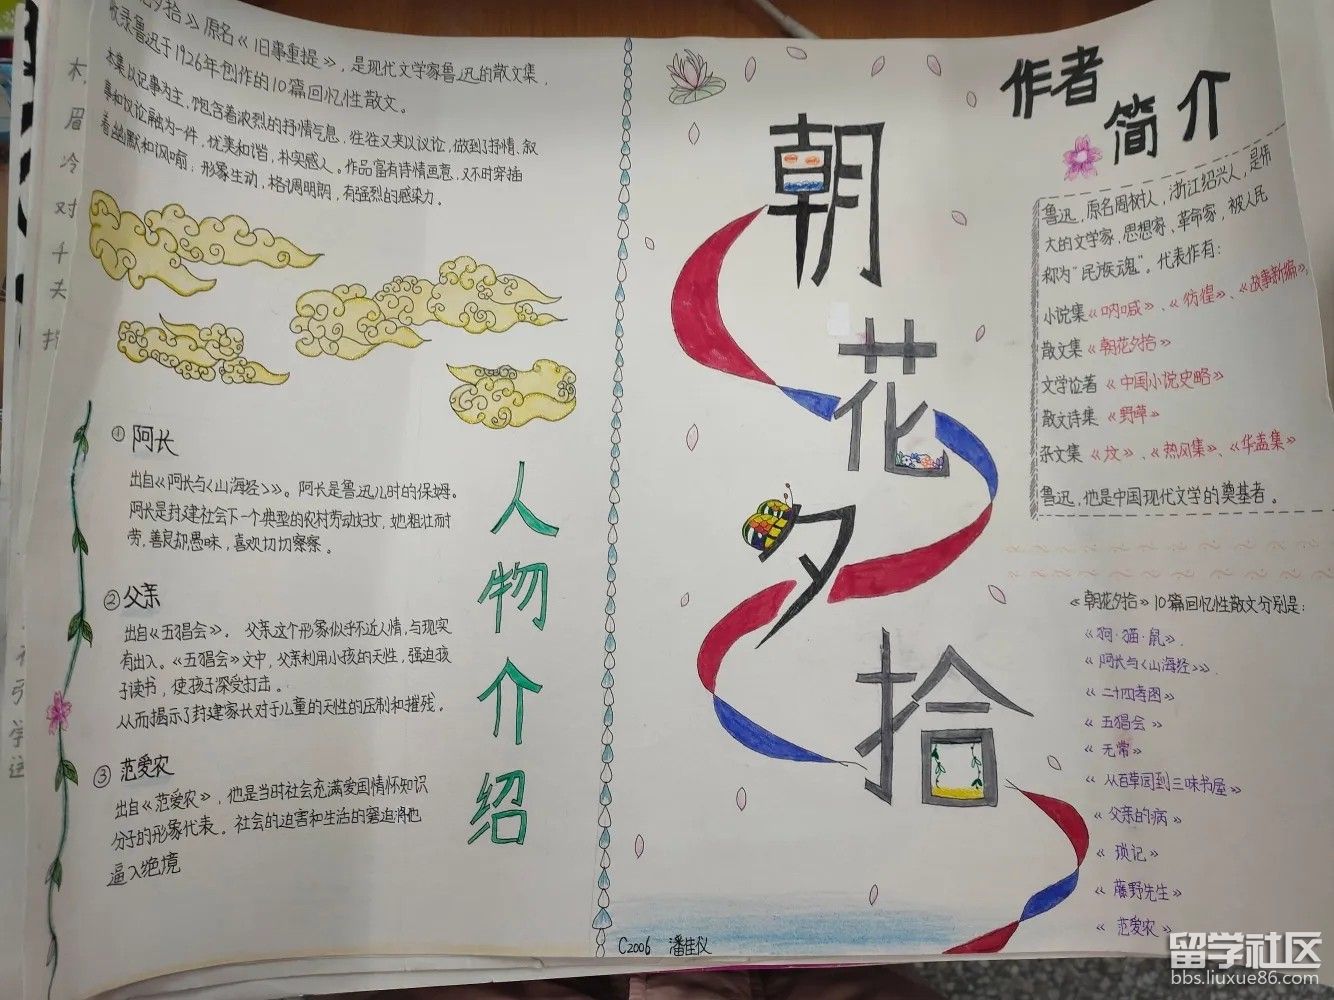 夕拾》原名《旧事重提》，是现代文学家鲁迅的散文集，
收录鲁迅于1926年创作的10篇回忆性散文。
本集以记事为主，饱含着浓烈的抒情气息，往往又夹以议论，做到了抒情、叙
事和议论融为一件，优美和谐，朴实感人。作品富有诗情画意，又不时穿插
着幽默和讽喻；形象生动，格调明朗，有强烈的感染力。
眉
冷
对
千
夫
指
①阿长
出自《阿长与〈山海经〉》。阿长是鲁迅儿时的保姆。
阿长是封建社会下一个典型的农村劳动妇女，她粗壮而耐
劳，善良却愚昧，喜欢切切察察。
②父亲
出自《五猖会》，父亲这个形象似乎不近人情，与现实
有出入。《五猖会》文中，父亲利用小孩的天性，强迫孩
子读书，使孩子深受打击。
从而揭示了封建家长对于儿童的天性的压制和摧残。
③范爱农
出自《范爱农》，他是当时社会充满爱国情怀知识
分子的形象代表。社会的迫害和生活的窘迫将他
逼入绝境
人物介绍
朝花夕拾
C2006 潘佳仪
作者简介
鲁迅，原名周树人，浙江绍兴人，是伟
大的文学家，思想家、革命家，被人民
称为"民族魂"。代表作有：
小说集《呐喊》、《彷徨》、《故事新编》，
散文集《朝花夕拾》
文学论著《中国小说史略》
散文诗集《野草》
杂文集《坟》、《热风集》、《华盖集》
鲁迅，他是中国现代文学的奠基者。
《朝花夕拾》10篇回忆性散文分别是：
《狗·猫·鼠》．
《阿长与〈山海经〉》．
《二十四孝图》
《五猖会》
《无常》
《从百草园到三味书屋》
《父亲的病》
《琐记》
《藤野先生》
《范爱农》
留学社区
bbs.liuxue86.com